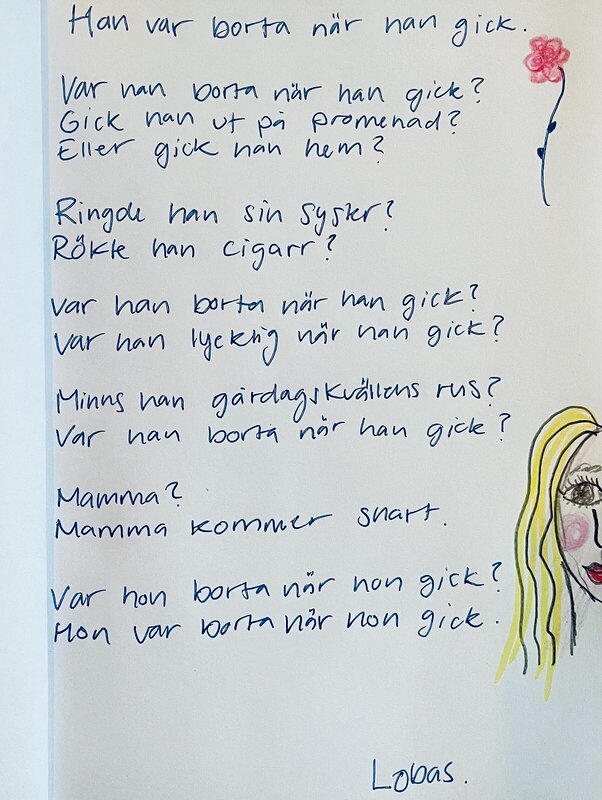 Han var borta när han gick.
Var han borta när han gick?
Gick han ut på promenad?
Eller gick han hem?
Ringde han sin syster?
Rökte han cigarr?
Var han borta när han gick?
Var han lycklig när han gick?
Minns han gårdagskvällens rus?
Var han borta når han gick?
Mamma?
Mamma kommer snart.
Var hon borta när hon gick?
Hon var borta når hon gick.
Lobas.